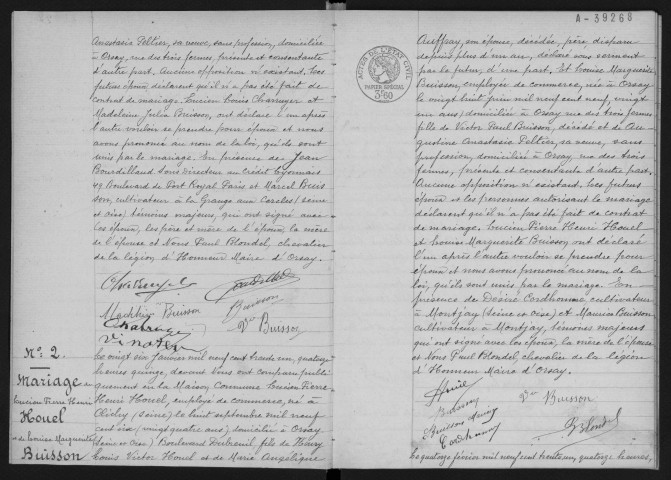 Anastasie Peltier, sa veuve, sans profession, domiciliée
à Orsay, rue des trois fermes, présente et consentante
d'autre part. Aucune opposition n'existant. Les
futurs époux déclarent qu'il n'a pas été fait de
contrat de mariage. Lucien Louis Charruyer et
Madeleine Julia Buisson, ont déclaré l'un après
l'autre vouloir se prendre pour époux et nous
avons prononcé au nom de la loi, qu'ils sont
unis par le mariage. En présence de: Jean
Bourdillaud Sous Directeur au Crédit Lyonnais
49 Boulevard de Port Royal Paris et Marcel Buis
son, cultivateur à la Grange aux Cercles (Seine
et Oise) témoins majeurs, qui ont signé avec
les époux, les père et mère de l'époux, la mère
de l'épouse et Nous Paul Blondel, chevalier
de la légion d'Honneur Maire d'Orsay.
Buisson
Buisson
Vve Buisson
No: 2.
Mariage de
Lucien Pierre Henri
Houel
et de Louise Marguerite
Buisson
Le vingt six Janvier mil neuf cent trente un, quatorze
heures quinze, devant nous ont comparu publi
quement en la Maison Commune Lucien Pierre
Henri Houel, employé de commerce, né à
Clichy (Seine) le huit septembre mil neuf
cent six (vingt quatre ans) domicilié à Orsay
(Seine et Oise) Boulevard Dubreuil fils de Henry
Louis Victor Houel et de Marie Angélique
A-39268
ACTES DE L'ETAT CIVIL
PAPIER SPECIAL
3F60
Auffray, son épouse, décédée, père disparu
depuis plus d'un an, déclaré sous serment
par le futur, d'une part. Et Louise Marguerite
Buisson, employée de commerce, née à Orsay
le vingt huit juin mil neuf cent neuf, vingt
un ans) domiciliée à Orsay rue des trois fermes
fille de Victor Paul Buisson, décédé et de Au
gustine Anastasie Peltier, sa veuve, sans
profession, domiciliée à Orsay, rue des trois
fermes, présente et consentante d'autre part.
Aucune opposition n'existant. Les futurs
époux et les personnes autorisant le mariage
déclarent qu'il n'a pas été fait de contrat
de mariage. Lucien Pierre Henri Houel
et Louise Marguerite Buisson ont déclaré
l'un après l'autre vouloir se prendre pour
époux et nous avons prononcé au nom de la
loi, qu'ils sont unis par le mariage. En
présence de Désiré Cordhomme cultivateur
à Montjay (Seine et Oise) et Maurice Buisson
cultivateur à Montjay, témoins majeurs
qui ont signé avec les époux, la mère de l'épouse
et Nous Paul Blondel, chevalier de la légion
d'Honneur Maire d'Orsay.
Houel
Vve Buisson
Buisson
Cordhomme
Blondel
Le quatorze février mil neuf cent trente un, quatorze heures,